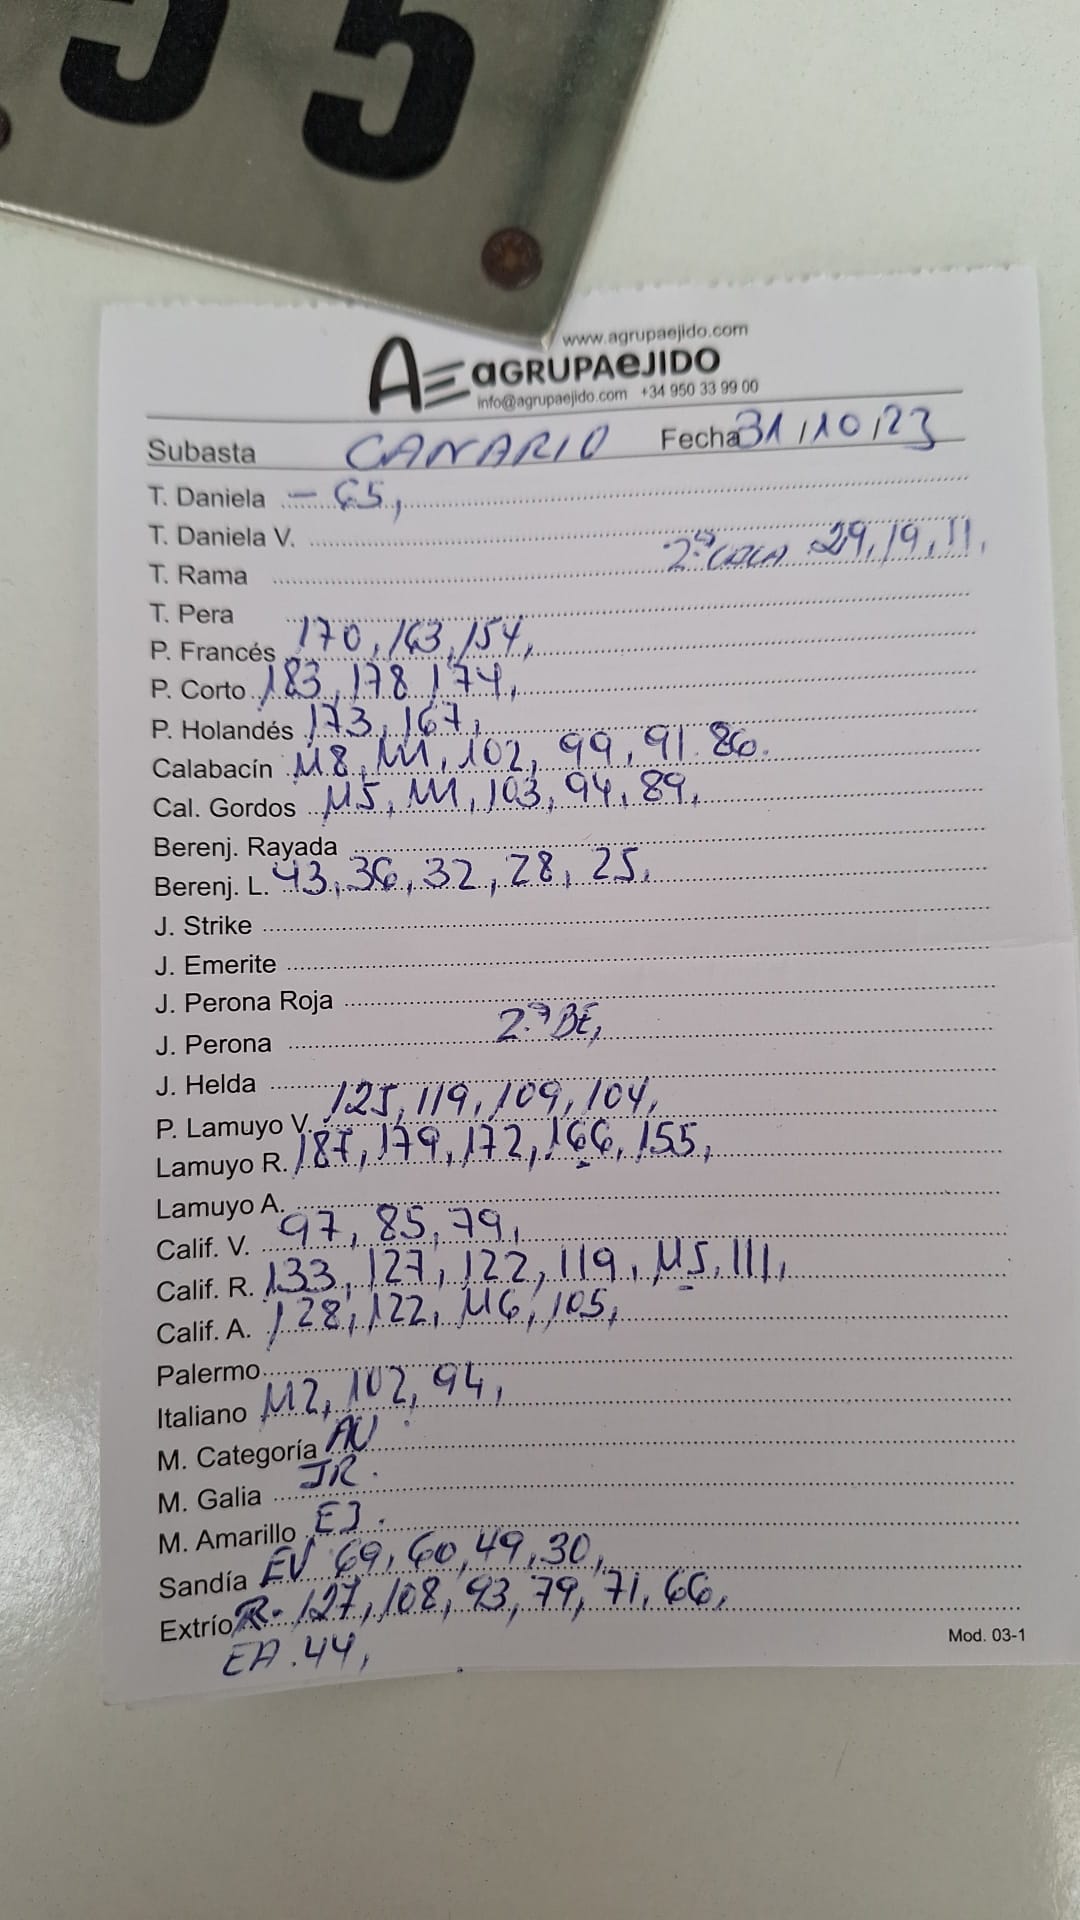 55
www.agrupaejido.com
AE aGRUPAeJIDO
info@agrupaejido.com +34 950 33 99 00
Subasta CANARIO Fecha 31/10/23
T. Daniela - 65,
T. Daniela V.
T. Rama 29, 19, 11,
T. Pera
P. Francés 170, 163, 154,
P. Corto 183, 178 174,
P. Holandés 173, 167,
Calabacín 118, 111, 102, 99, 91. 86.
Cal. Gordos 115, 111, 103, 94, 89,
Berenj. Rayada
Berenj. L. 43, 36, 32, 28, 25.
J. Strike
J. Emerite
J. Perona Roja
J. Perona 2.ª BE,
J. Helda
P. Lamuyo V. 125, 119, 109, 104,
Lamuyo R. 187, 179, 172, 166, 155,
Lamuyo A.
Calif. V. 97, 85, 79,
Calif. R. 133, 127, 122, 119, 115, 111,
Calif. A. 128, 122, 116, 105,
Palermo
Italiano 112, 102, 94,
M. Categoría AV
M. Galia JR.
M. Amarillo EJ.
Sandía EV 69, 60, 49, 30,
Extrío R. 127, 108, 93, 79, 71, 66,
EA. 44,
Mod. 03-1